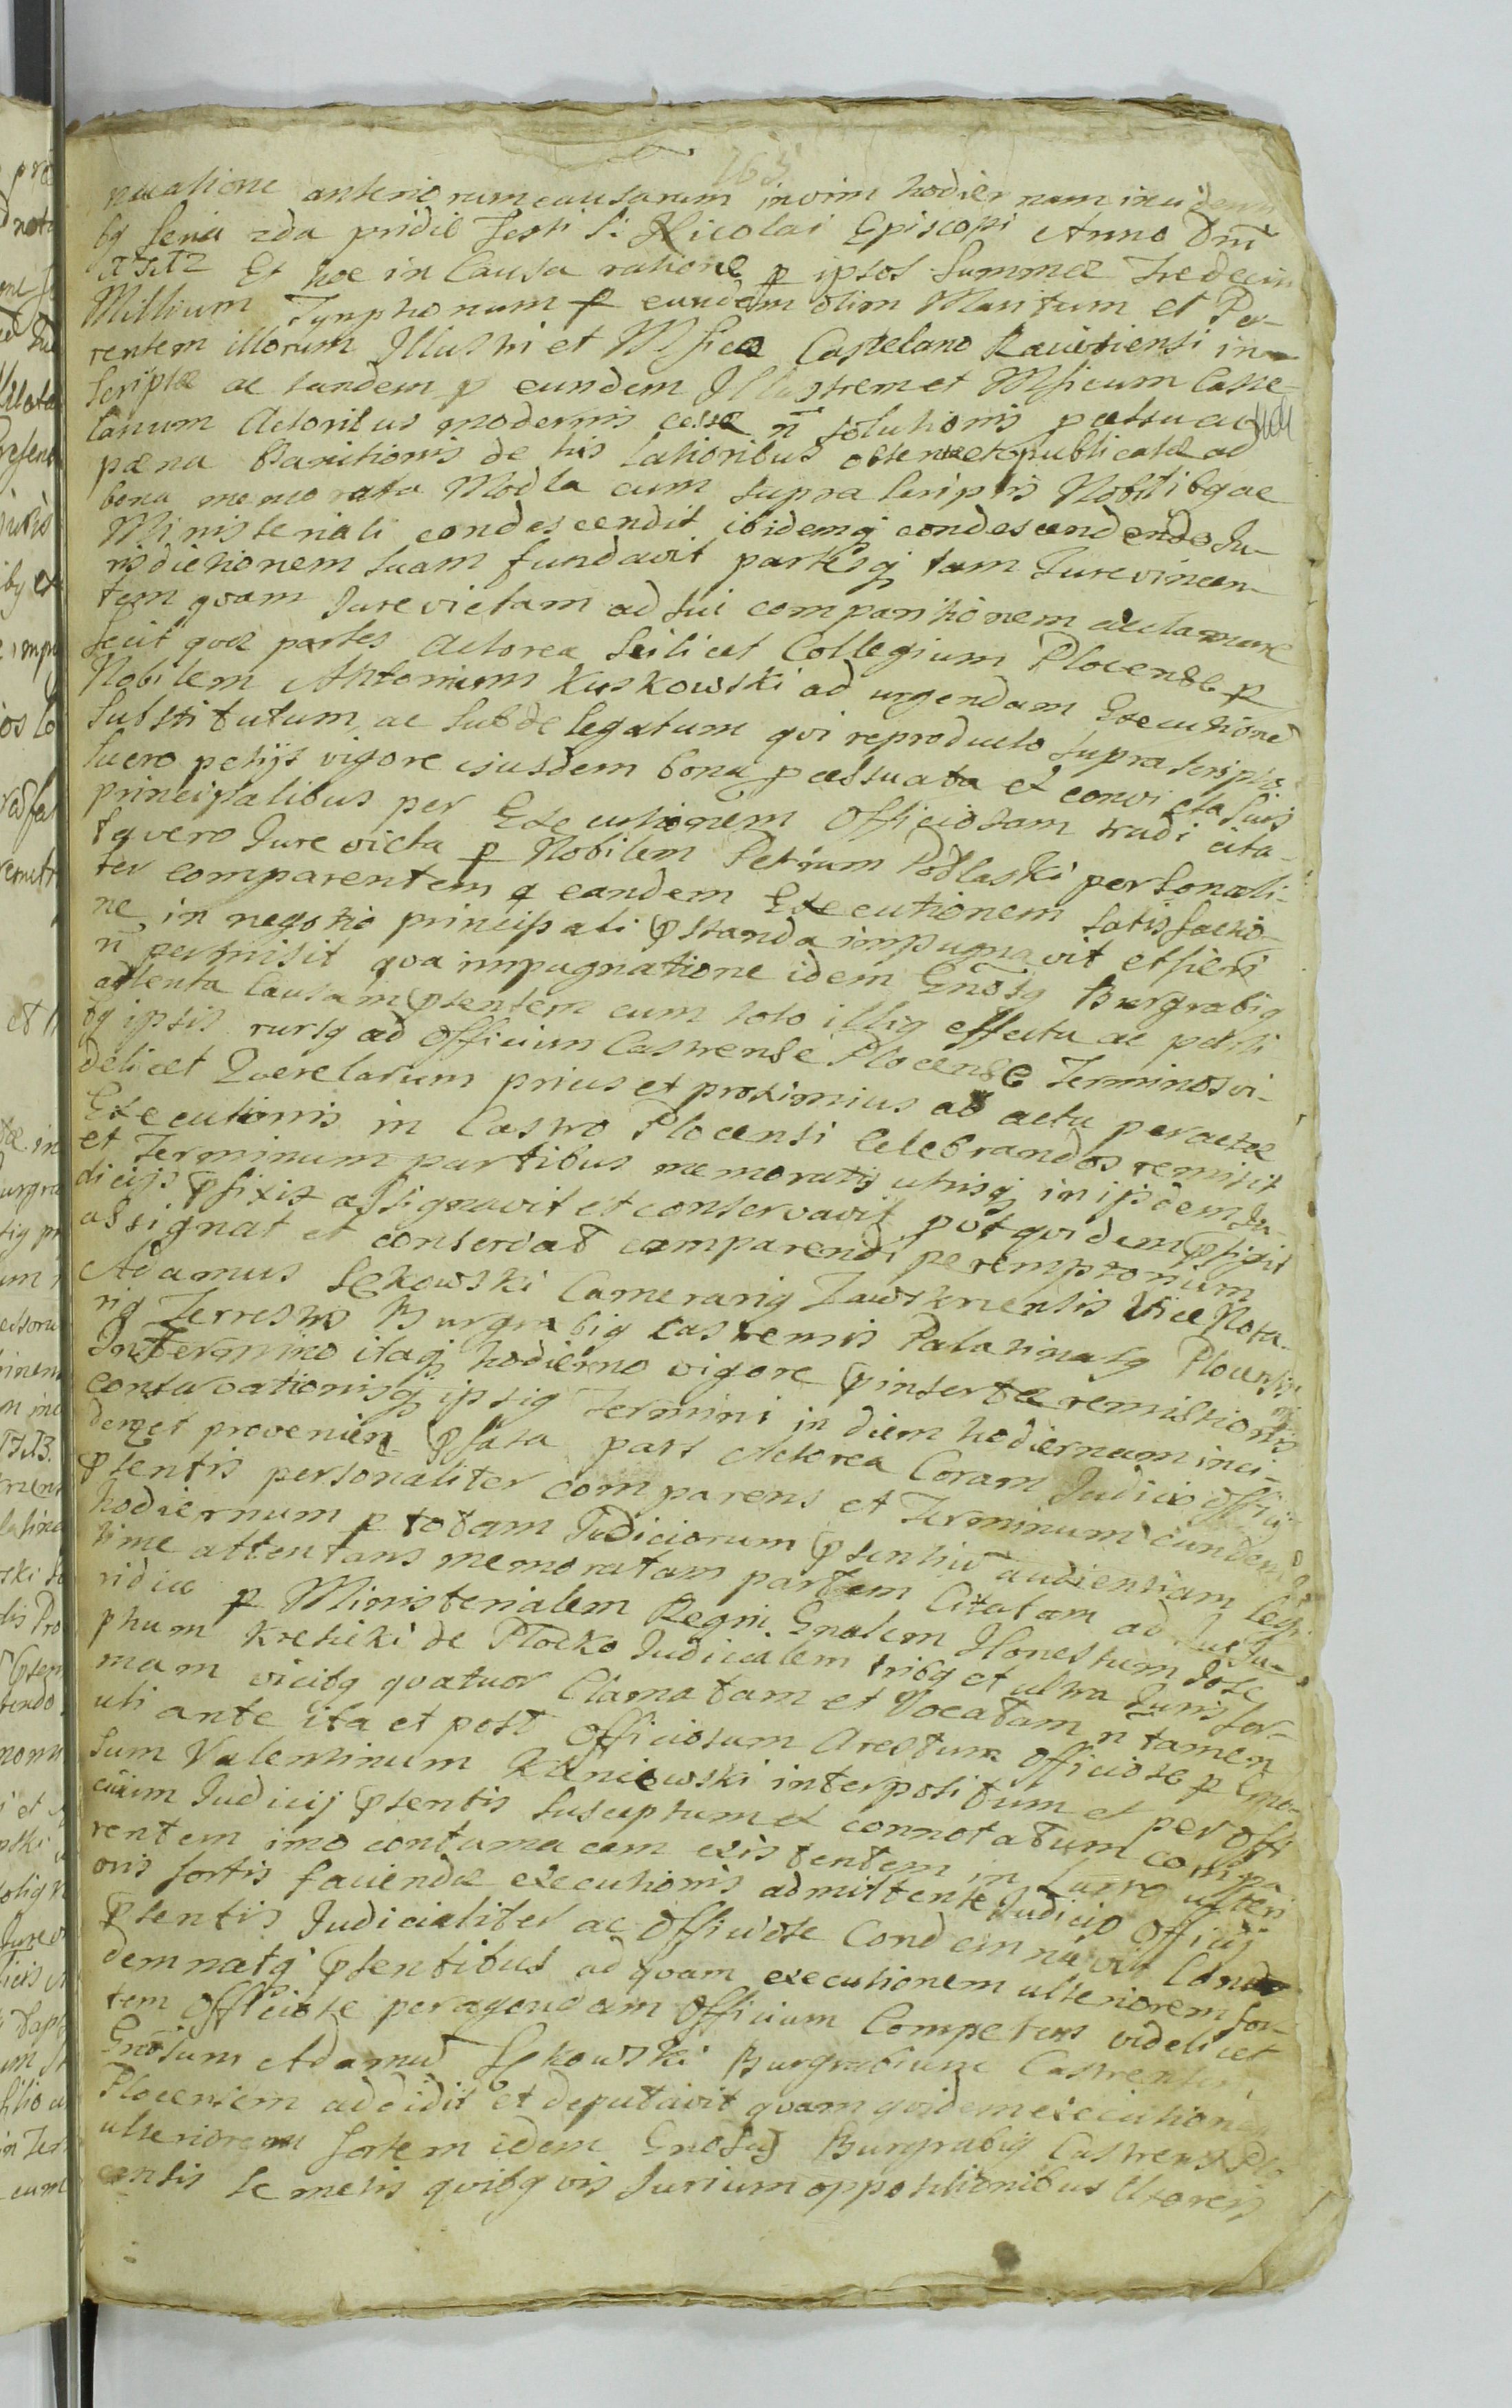 anteriorum causarum in vim hodiernam
bq feria 2da pridie Festi S: Nicolai Episcopi Anno Dni
Et hoc in Causa ratione p ipsos Summæ Tredecim
Millium Tynphonum p eundem olim Maritum et Pa-
rentem illorum Illustri et Mfico Castelano Raviensi in-
scriptæ ac tandem p eundem Illustrem et Mficum Caste-
lanum Actoribus modernis cessæ n solutionis
pæna Banitionis de his lationibus obtentæ et publicatæ ad
bona memorata Modla cum supra scriptis Nobilibq ac
Ministeriali condescendit ibidemq condescendendo Ju-
risdictionem suam fundavit partesq tam Jurevincen-
tem quam Jurevictam ad sui comparitionem acclamare
fecit quæ partes Actorea scilicet Collegium Plocense p
Nobilem Antonium Kuskowski ad urgendam Executione
Substitutum ac Subdelegatum qui reproducto supra scripto
lucro petijt vigore ejusdem bona et convicta suis
principalibus per Executionem Officiosam tradi cita-
tq vero Jurevicta p Nobilem Petrum Podlaski personali-
ter comparentem q eandem Executionem satisfactio-
ne in negotio principali pstanda impugnavit et fieri
n permisit qua impugnatione idem Gnosq Burgrabiq
attenta Causam psentem cum toto illiq effectu ac parti
bq ipsis rursq ad Officium Castrense Plocense Terminos vi-
delicet Querelarum prius et proximius ab actu peractæ
Executionis in Castro Plocensi celebrandos remisit
et Terminum partibus memoratis utrisq in ijsdem Ju-
dicijs pfixit assignavit et conservavit pot quidem pfigit
assignat et conservat comparendi peremptorium
Adamus Sękowski Camerariq Zawskrensis Vice Nota-
riq Terrestris Burgrabiq Castrensis Palatinatq Plocensis
In Termino itaq hodierno vigore pinsertæ remissionis
conservationisq ipsiq Termini in diem hodiernum inci-
den et provenien pfata pars Actorea Coram Judicio Officij
psentis personaliter comparens et Terminum eundem
hodiernum p totam Judiciorum psentium audientiam legi-
time attentans memoratam partem Citatam ad
ridice p Ministerialem Regni Gnalem Honestum Jose-
phum Kretuki de Plocko Judicialem tribq et ultra Juris for-
mam vicibq quatuor Clamatam et Vocatam n tamen
uti ante ita et post Officiosum Arestum Officiose p Gno-
sum Valentinum interpositum et per Offi
cium Judicij psentis susceptum et connotatum compa-
rentem imo contumacem existentem in Lucro ulteri
oris fortis faciendæ executionis admittente Judicio Officij
psentis Judicialiter ac Officiose Condemnavit Con-
demnatq psentibus ad quam executionem ulteriorem for-
tem Officiose peragendam Officium Competens videlicet
Gnosum Adamum Sękowski Burgrabium Castrensem
Plocensem addidit et deputavit quam quidem executionem
ulteriorem fortem idem Gnosus Burgrabiq Castrensis Plo
censis semotis quibqvis Jurium oppositionibus